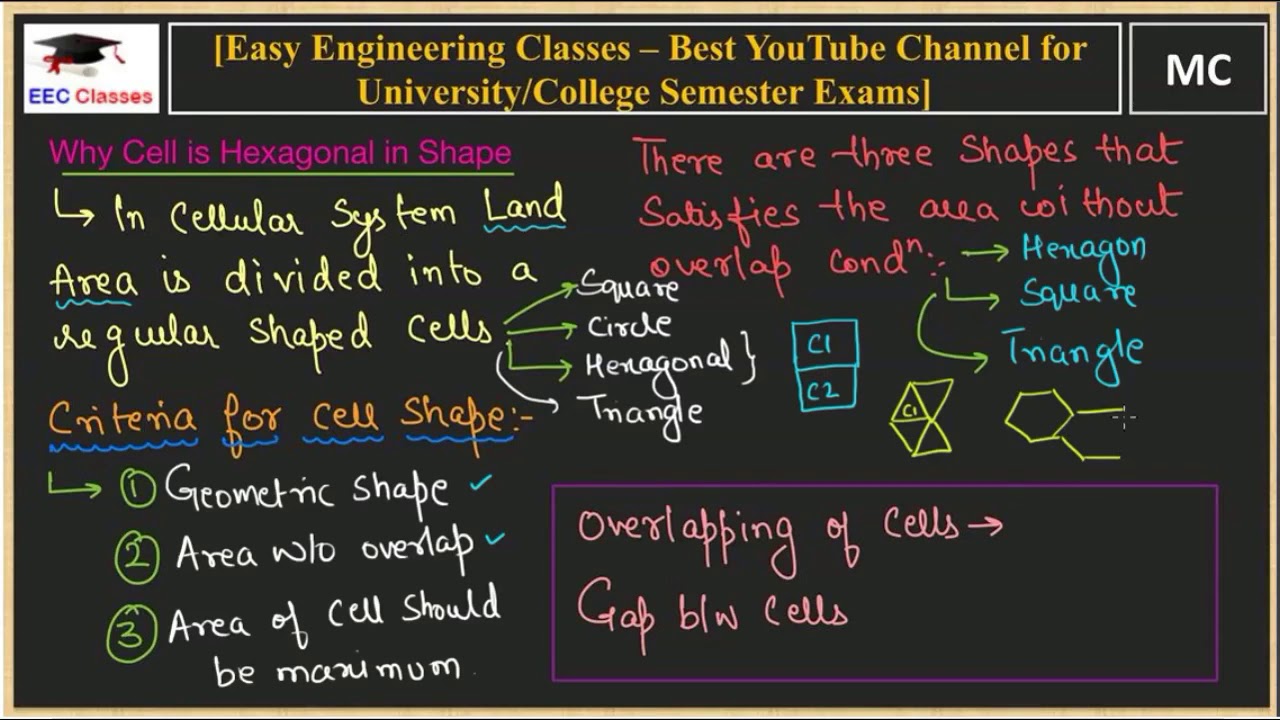 EEC Classes
[Easy Engineering Classes – Best YouTube Channel for
University/College Semester Exams]
MC
Why Cell is Hexagonal in Shape
↳ In Cellular System Land
Area is divided into a
regular shaped cells
→ Square
→ Circle
→ Hexagonal }
→ Triangle
Criteria for Cell Shape:-
↳ ① Geometric shape ✓
② Area w/o overlap ✓
③ Area of cell should
be maximum
There are three shapes that
Satisfies the area without
overlap condⁿ:-
→ Hexagon
→ Square
→ Triangle
C1
C2
C1
Overlapping of cells →
Gap b/w cells